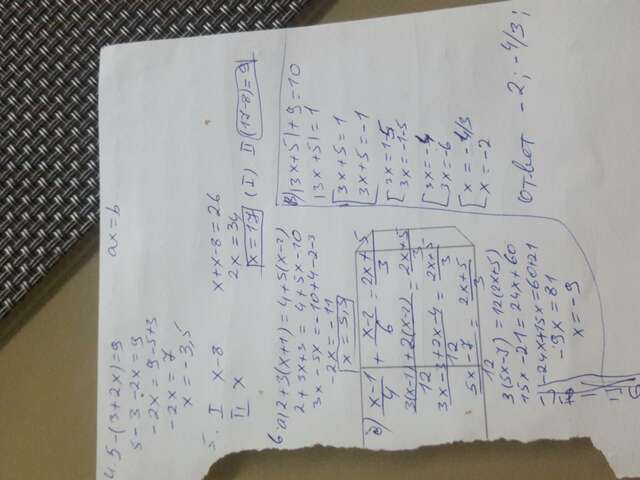 4. 5-(3+2x)=9
ax=b
5-3-2x=9
-2x=9-5+3
-2x=7
x=-3,5
5. I x-8
II x
x+x-8=26
2x=34
x=17 (I) II (17-8)=9
6 a) 2+3(x+1)=4+5(x-2)
2+3x+3=4+5x-10
3x-5x=-10+4-2-3
-2x=-11
x=5,5
б) x-1/4 + x-2/6 = 2x+5/3
3(x-1)+2(x-2)/12 = 2x+5/3
3x-3+2x-4/12 = 2x+5/3
5x-7/12 = 2x+5/3
3(5x-7)=12(2x+5)
15x-21=24x+60
-24x+15x=60+21
-9x=81
x=-9
в) |3x+5|+9=10
|3x+5|=1
[3x+5=1
3x+5=-1
[3x=1-5
3x=-1-5
[3x=-4
3x=-6
[x=-4/3
x=-2
Ответ -2; -4/3;